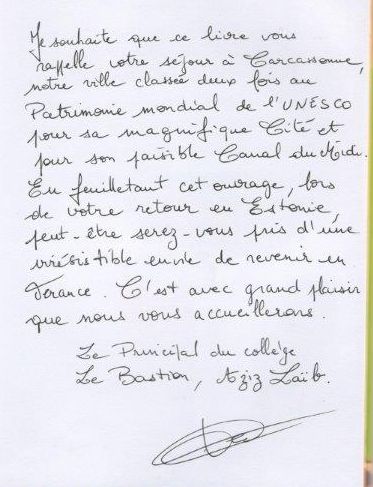 Je souhaite que ce livre vous
rappelle votre séjour à Carcassonne,
notre ville classée deux fois au
Patrimoine mondial de l'UNESCO
pour sa magnifique Cité et
pour son paisible Canal du Midi.
En feuilletant cet ouvrage, lors
de votre retour en Estonie,
peut-être serez-vous pris d'une
irrésistible envie de revenir en
France. C'est avec grand plaisir
que nous vous accueillerons.
Le Principal du collège
Le Bastion, Aziz Laïb.